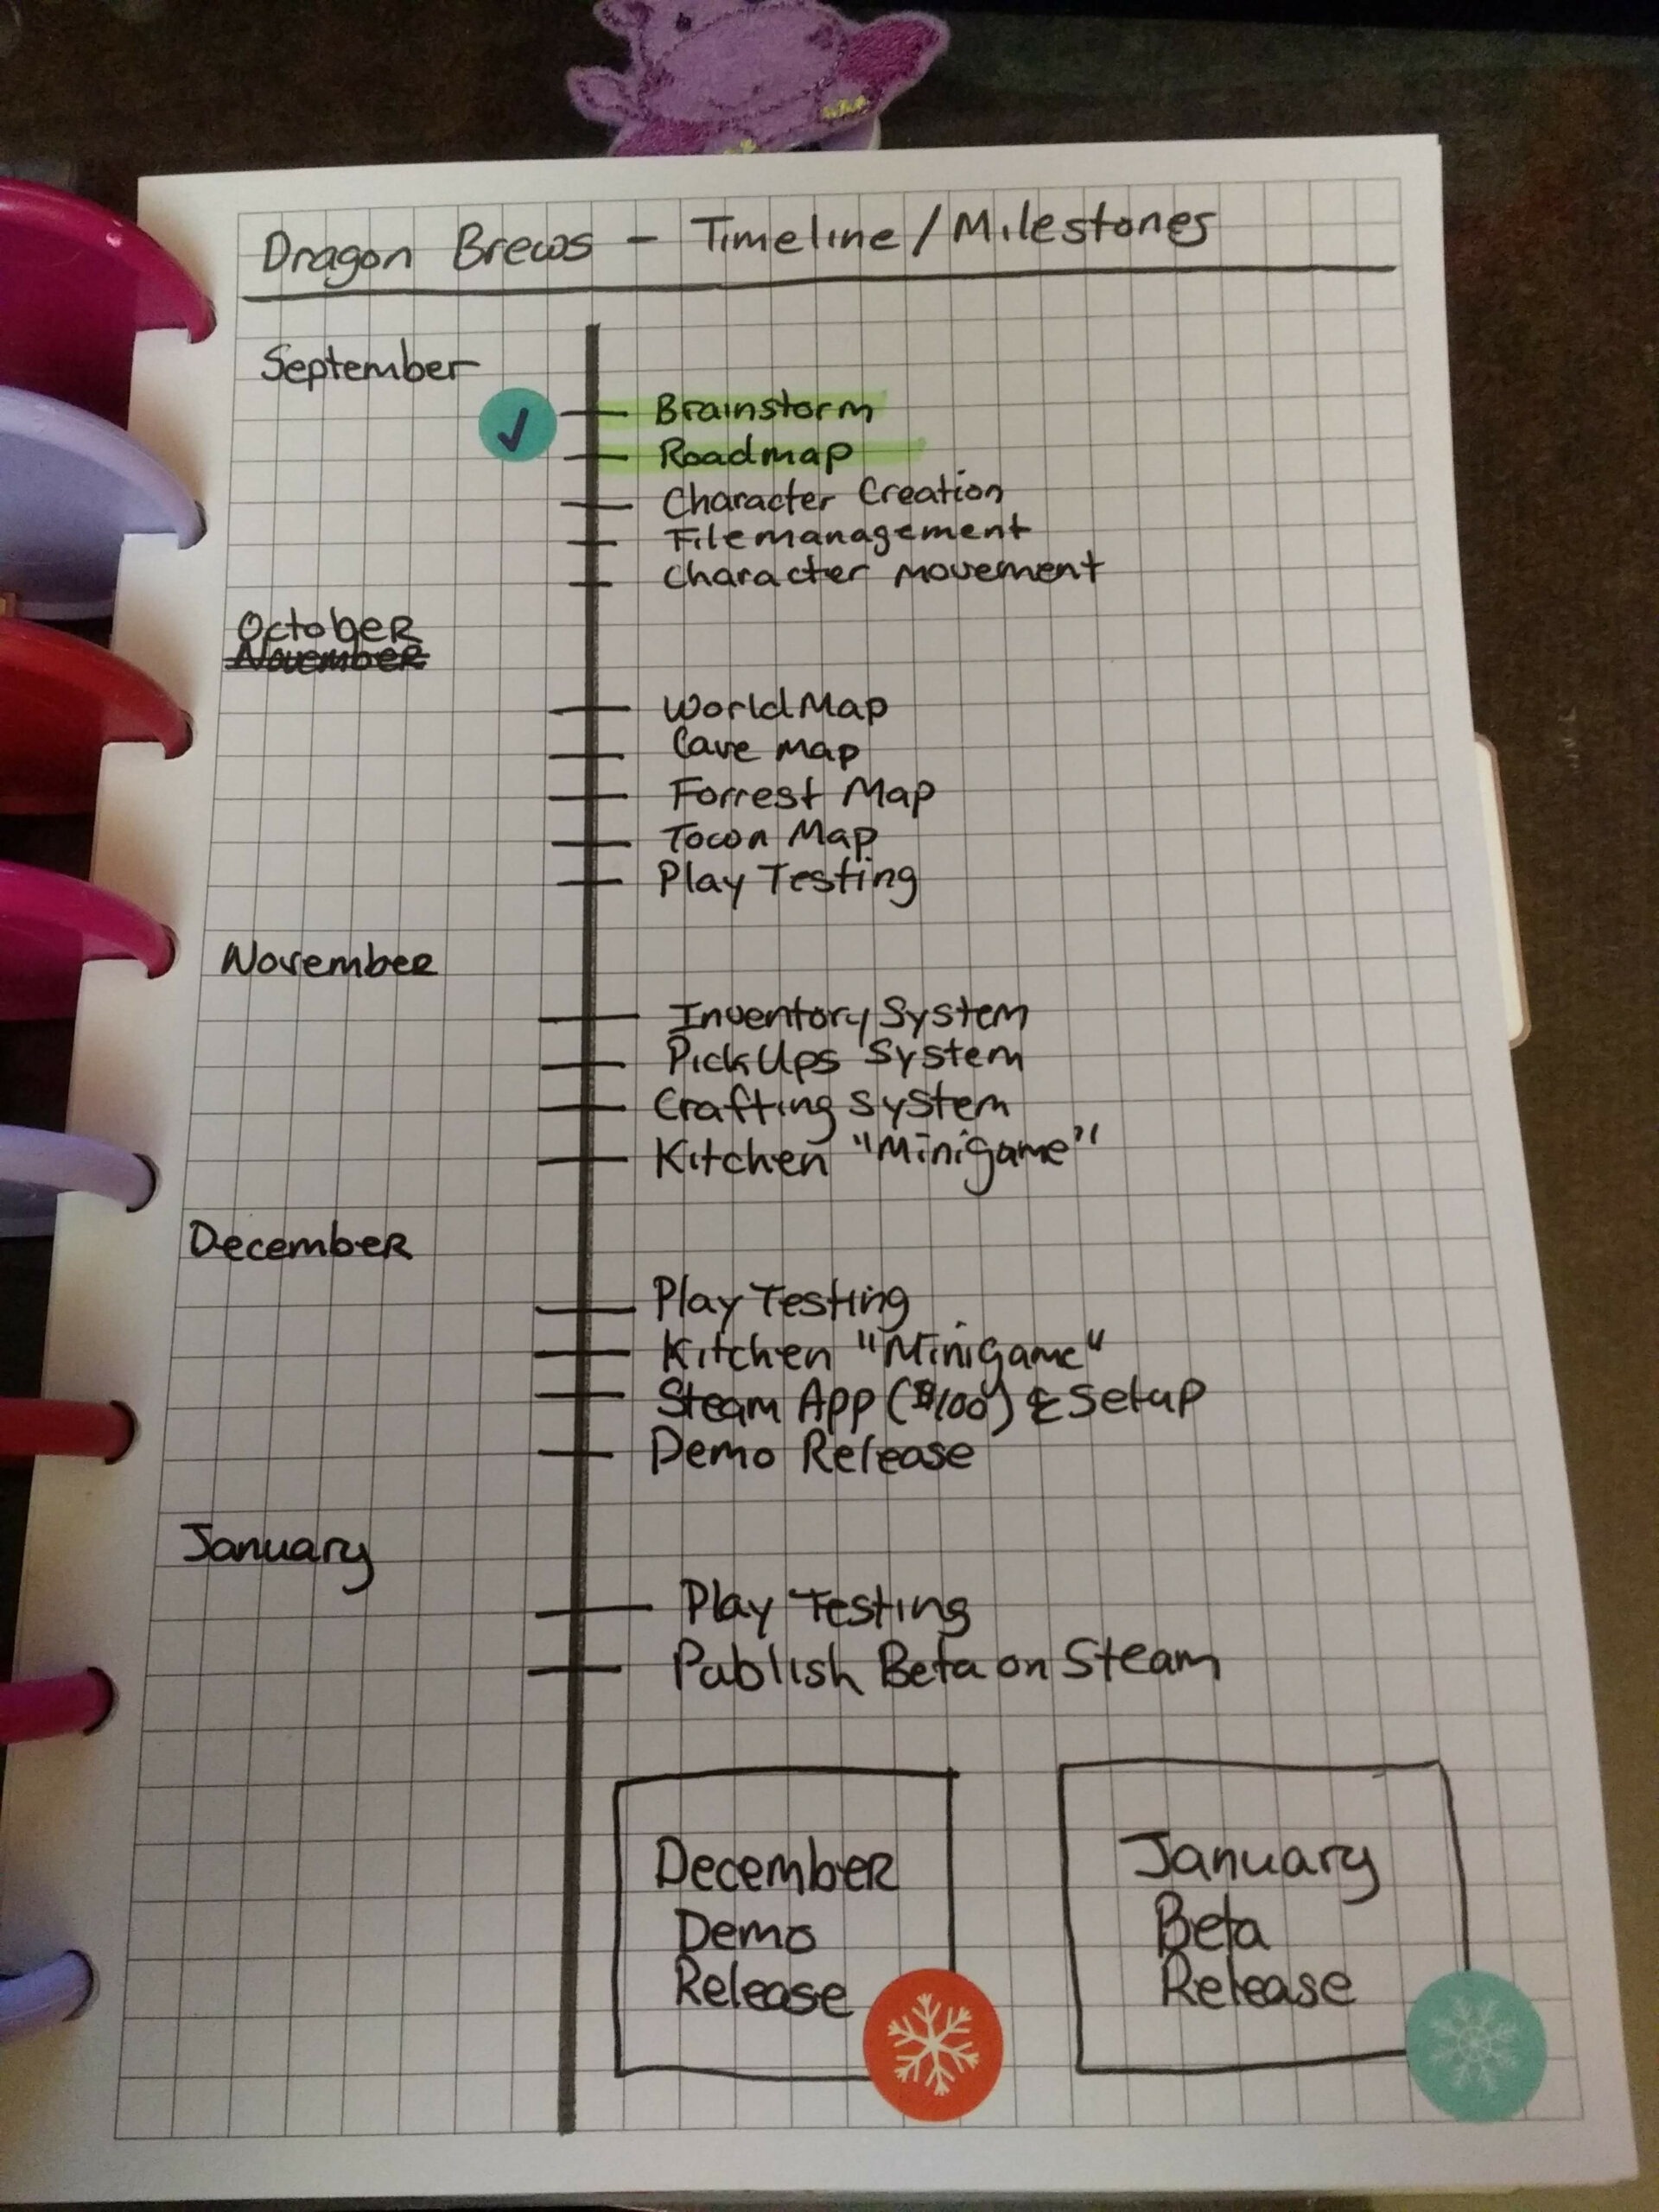 Dragon Brews - Timeline/Milestones
September
Brainstorm
Roadmap
Character Creation
Filemanagement
Character movement
October
November
World Map
Cave Map
Forrest Map
Town Map
Play Testing
November
Inventory System
PickUps System
Crafting System
Kitchen "Minigame"
December
Play Testing
Kitchen "Minigame"
Steam App ($100) & Setup
Demo Release
January
Play Testing
Publish Beta on Steam
December
Demo
Release
January
Beta
Release